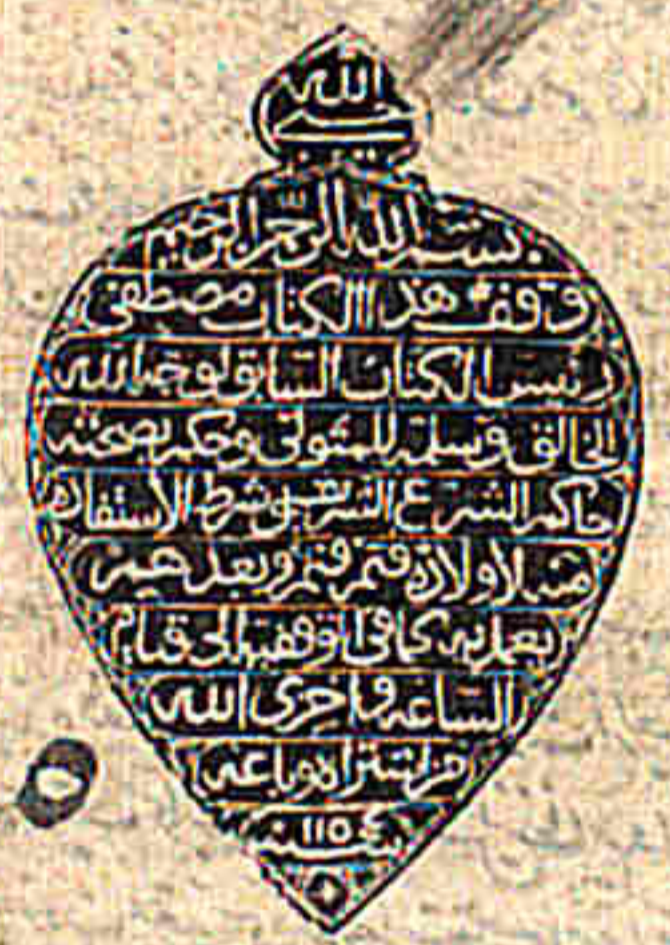 حسبي الله
بسم الله الرحمن الرحيم
وقف هذا الكتاب مصطفى
رئيس الكتاب السابق لوجه الله
الخالق وسلمه للمتولى وحكم بصحته
حاكم الشرع الشريف وشرط الاستفاده
منه لاولاده وبعدهم
يعمل به كما فى الوقفيه الى قيام
الساعه واخزى الله
من اشتراه وباعه
سنه ١١٥٤